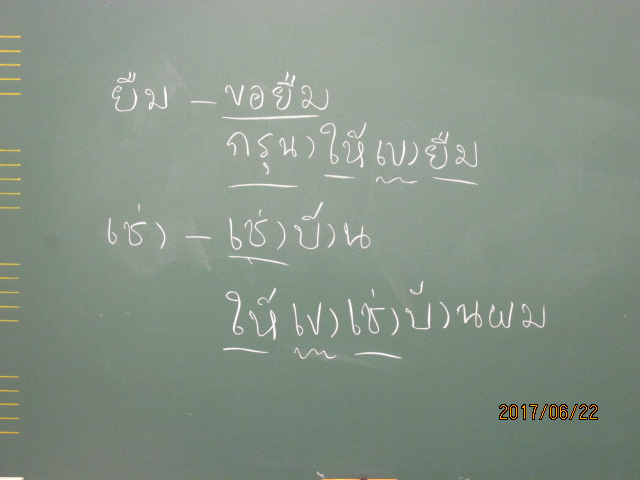 ยืม – ขอยืม
กรุนาให้เขายืม
เช่า – เช่าบ้าน
ให้เขาเช่าบ้านผม
2017/06/22